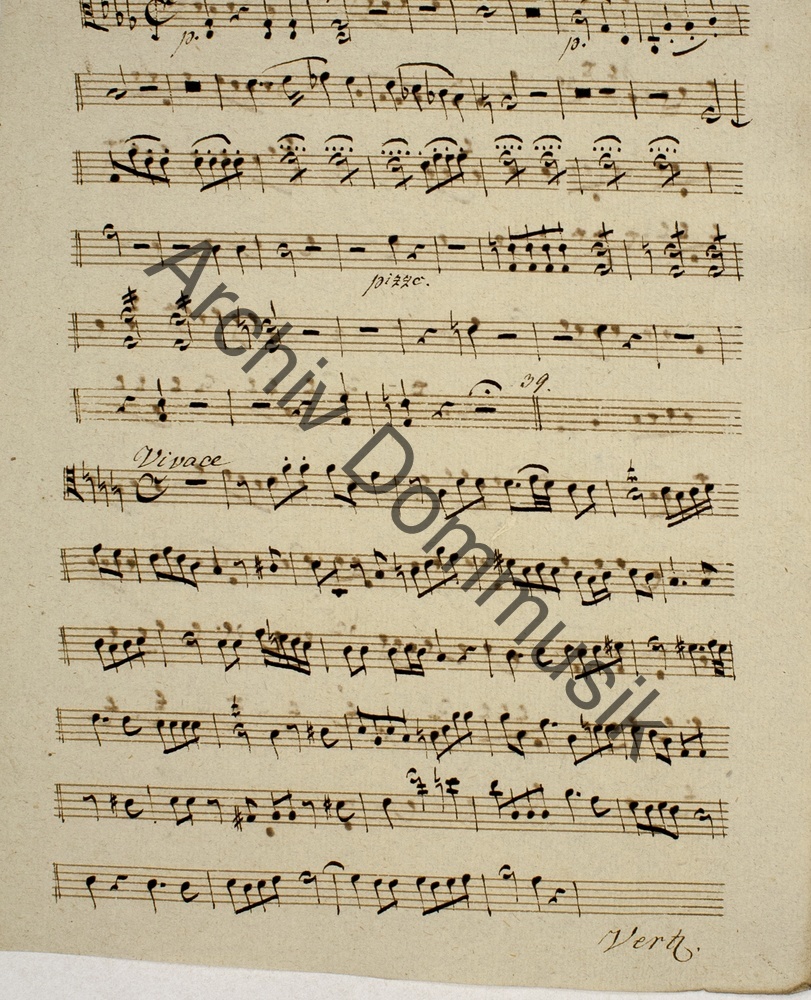 p. p.
pizzc.
39.
Vivace
Archiv Dommusik